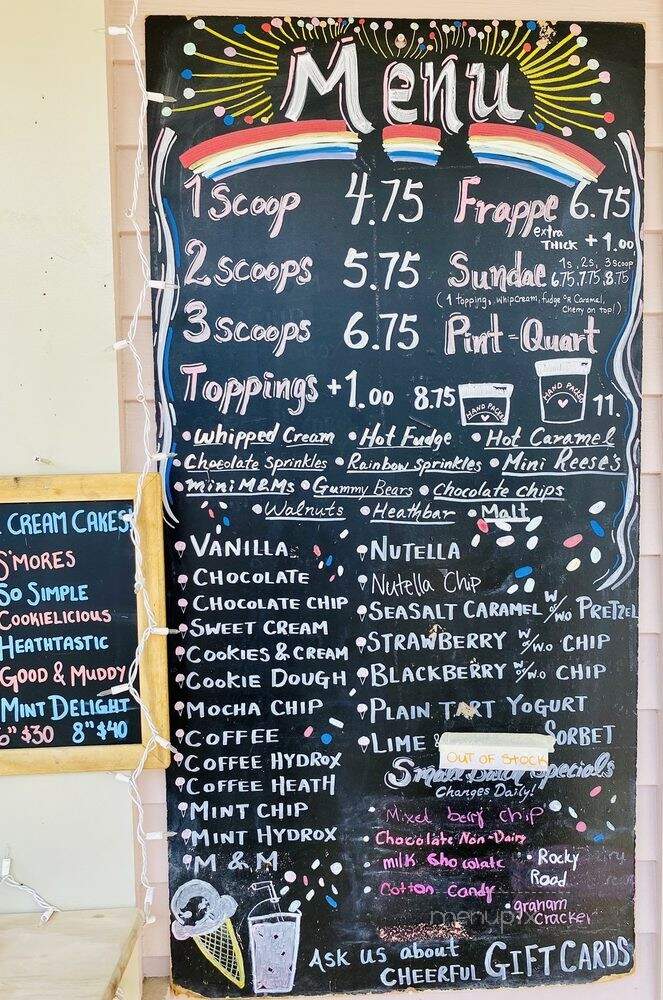 Menu
1 Scoop 4.75
2 Scoops 5.75
3 Scoops 6.75
Toppings +1.00
Frappe 6.75
extra THICK +1.00
1s, 2s, 3scoop
Sundae 6.75, 7.75, 8.75
(1 topping, whipcream, fudge OR Caramel,
Cherry on top!)
Pint - Quart
8.75 HAND PACKED HAND PACKED 11.
• Whipped Cream • Hot Fudge • Hot Caramel
• Chocolate Sprinkles • Rainbow sprinkles • Mini Reese's
• mini M&Ms • Gummy Bears • Chocolate chips
• Walnuts • Heathbar • Malt
VANILLA
CHOCOLATE
CHOCOLATE CHIP
SWEET CREAM
COOKIES & CREAM
COOKIE DOUGH
MOCHA CHIP
COFFEE
COFFEE HYDROX
COFFEE HEATH
MINT CHIP
MINT HYDROX
M & M
NUTELLA
Nutella Chip
SEASALT CARAMEL W/W.O PRETZEL
STRAWBERRY W/W.O CHIP
BLACKBERRY W/W.O CHIP
PLAIN TART YOGURT
LIME & SORBET
OUT OF STOCK
Small Batch Specials
Changes Daily!
Mixed berry chip
• Chocolate Non-Dairy
• milk chocolate
• Cotton candy
• Rocky
Road
• graham
cracker
menupix
ASK US about
CHEERFUL GIFT CARDS
CREAM CAKES
S'MORES
SO SIMPLE
COOKIELICIOUS
HEATHTASTIC
GOOD & MUDDY
MINT DELIGHT
6" $30 8" $40